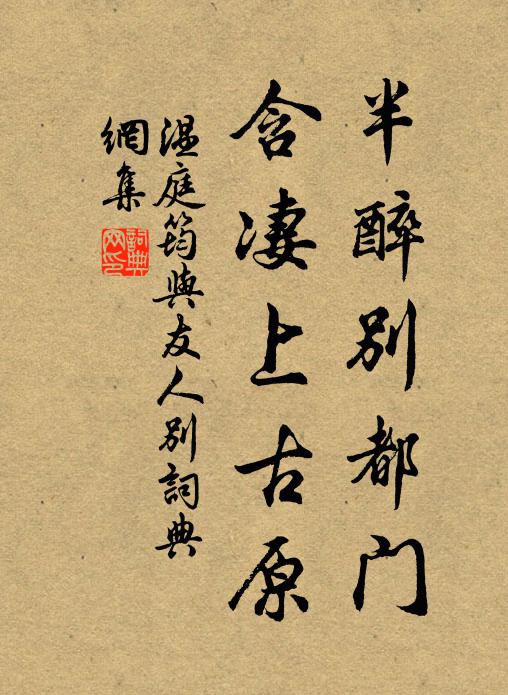 半醉别都门
含凄上古原
温庭筠與友人别詞典
網集
詞典
网印